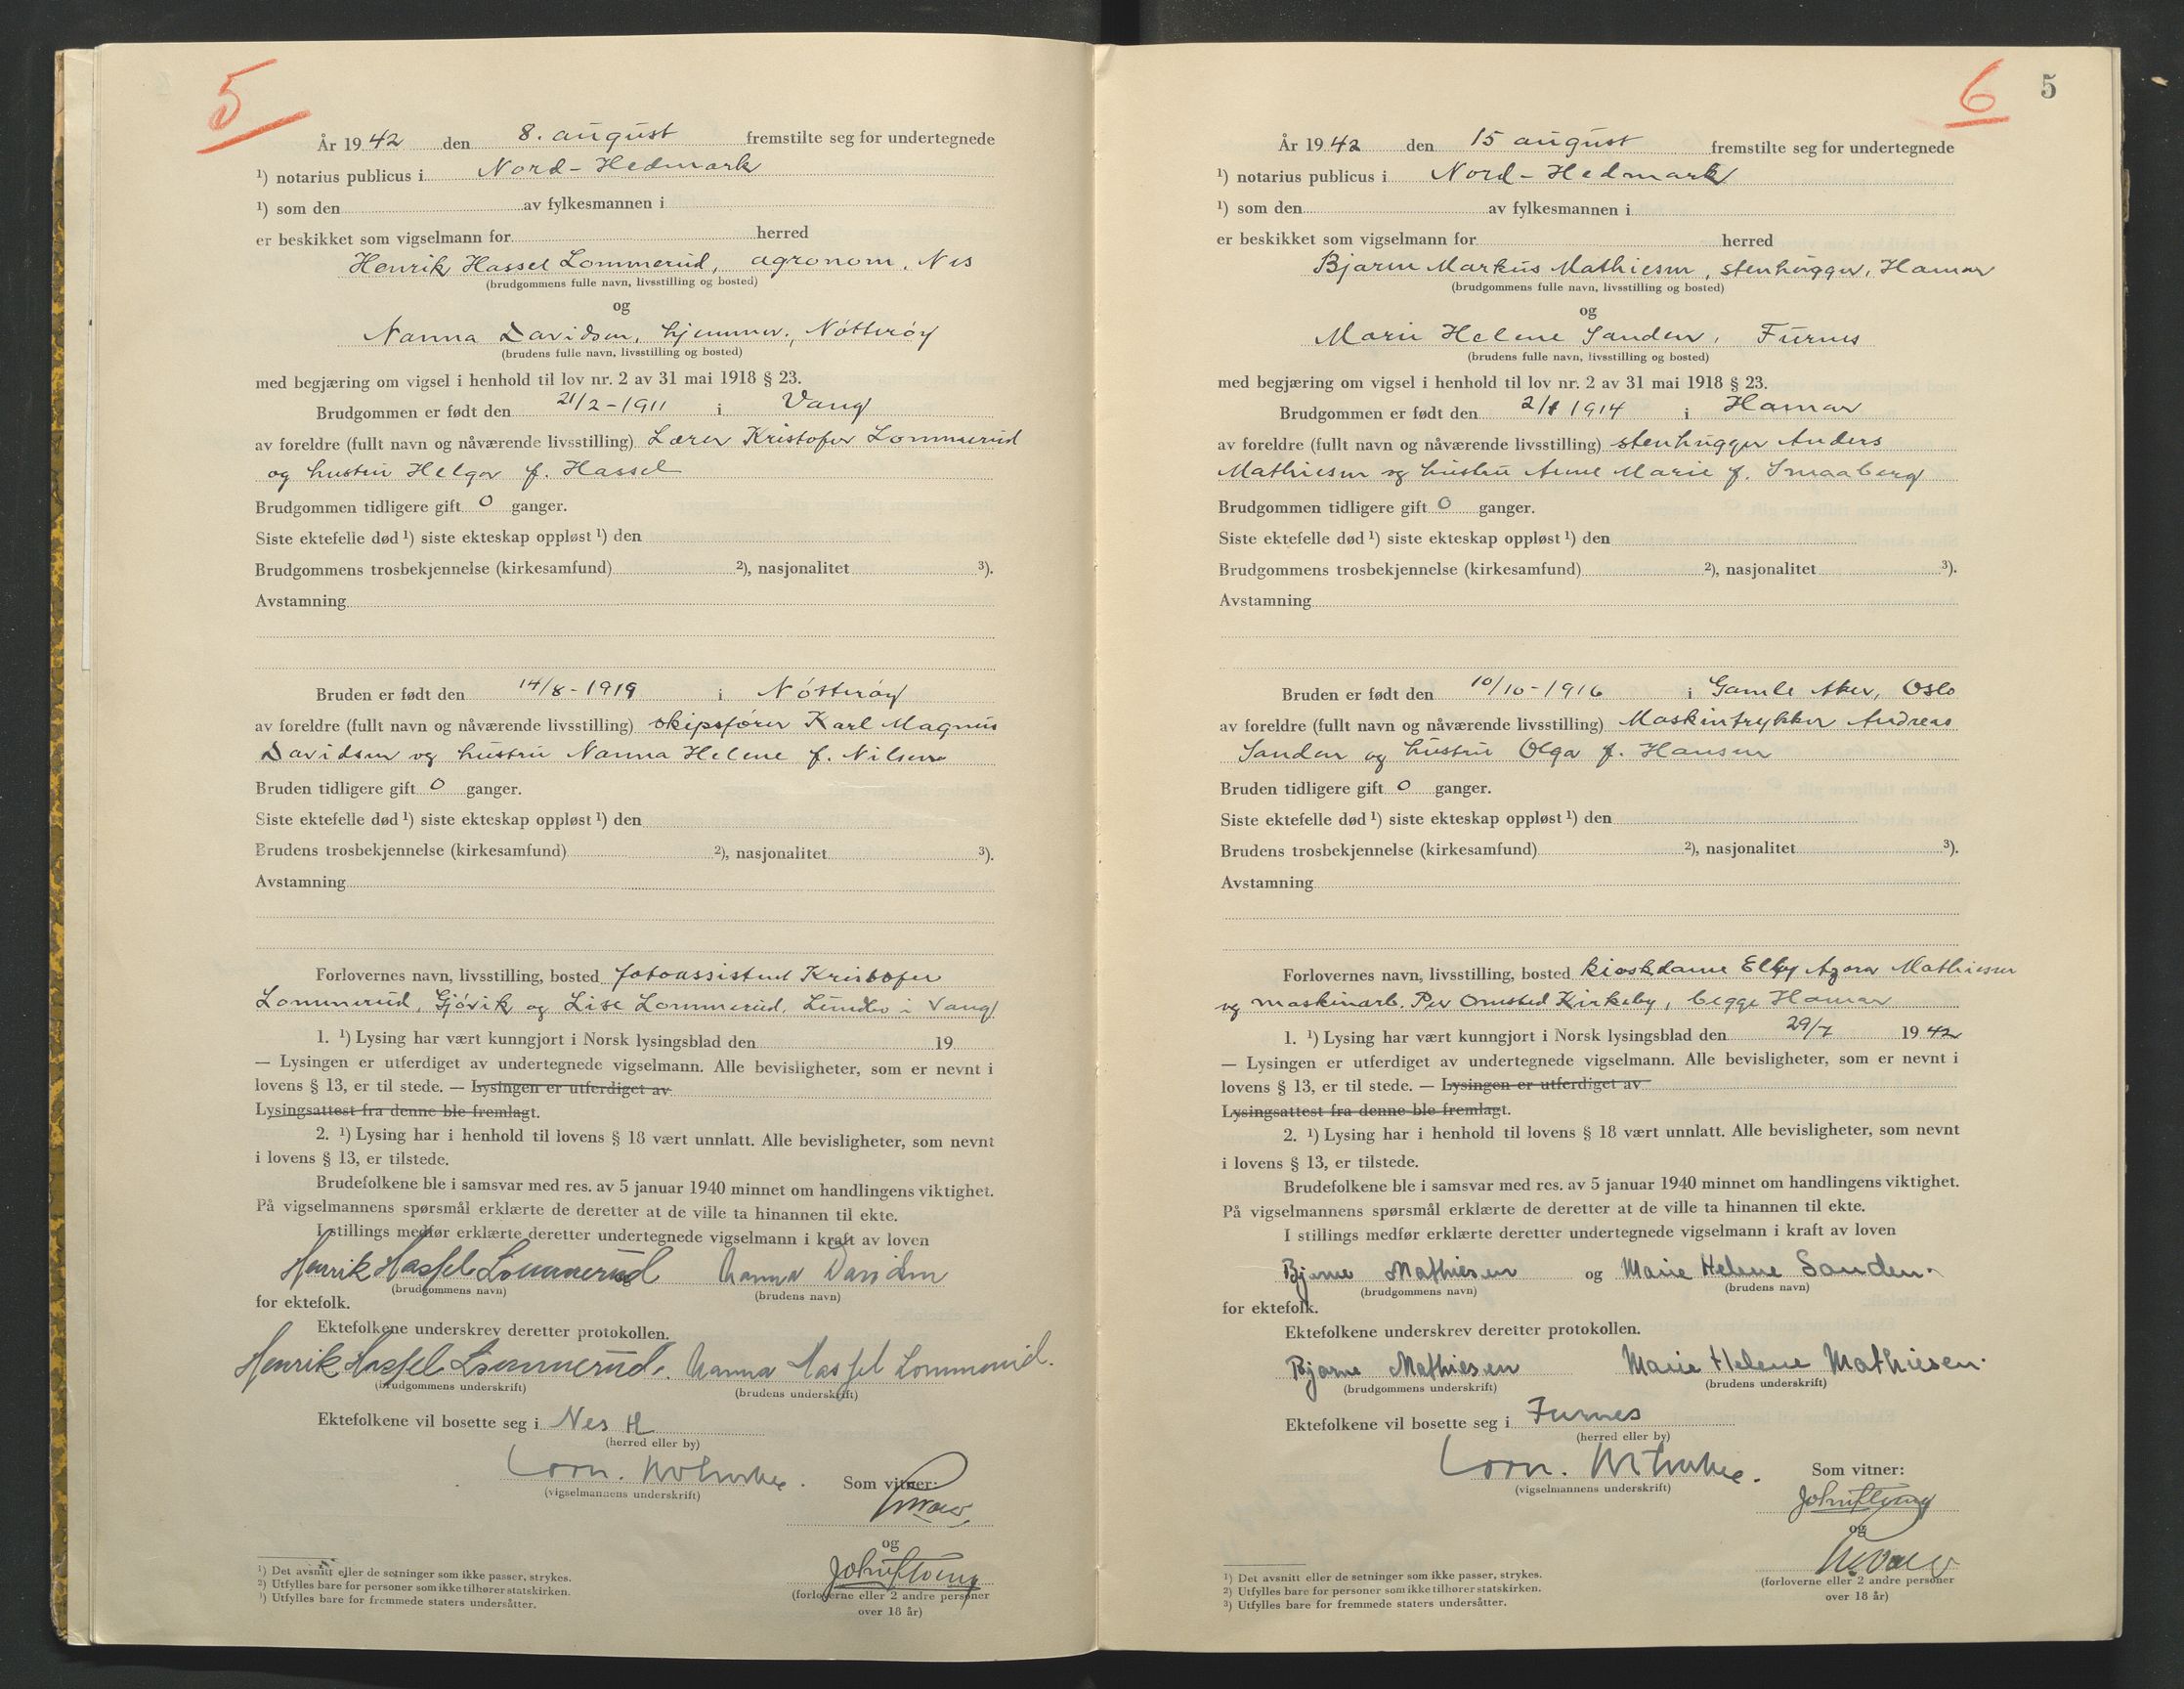 5
År 1942 den 8. august fremstilte seg for undertegnede
¹) notarius publicus i Nord-Hedmark
¹) som den av fylkesmannen i
er beskikket som vigselmann for herred
Henrik Hassel Lommerud, agronom, Nes
(brudgommens fulle navn, livsstilling og bosted)
og
Nanna Davidsen, hjemmev., Nøtterøy
(brudens fulle navn, livsstilling og bosted)
med begjæring om vigsel i henhold til lov nr. 2 av 31 mai 1918 § 23.
Brudgommen er født den 21/2-1911 i Vang
av foreldre (fullt navn og nåværende livsstilling) Lærer Kristofer Lommerud
og hustru Helga f. Hassel
Brudgommen tidligere gift 0 ganger.
Siste ektefelle død ¹) siste ekteskap oppløst ¹) den
Brudgommens trosbekjennelse (kirkesamfund) ²), nasjonalitet ³).
Avstamning
Bruden er født den 14/8-1919 i Nøtterøy
av foreldre (fullt navn og nåværende livsstilling) skipsfører Karl Magnus
Davidsen og hustru Nanna Helene f. Nilsen
Bruden tidligere gift 0 ganger.
Siste ektefelle død ¹) siste ekteskap oppløst ¹) den
Brudens trosbekjennelse (kirkesamfund) ²), nasjonalitet ³).
Avstamning
Forlovernes navn, livsstilling, bosted fotoassistent Kristofer
Lommerud, Gjøvik og Lise Lommerud, i Vang
1. ¹) Lysing har vært kunngjort i Norsk lysingsblad den 19
— Lysingen er utferdiget av undertegnede vigselmann. Alle bevisligheter, som er nevnt i
lovens § 13, er til stede. — Lysingen er utferdiget av
Lysingsattest fra denne ble fremlagt.
2. ¹) Lysing har i henhold til lovens § 18 vært unnlatt. Alle bevisligheter, som nevnt
i lovens § 13, er tilstede.
Brudefolkene ble i samsvar med res. av 5 januar 1940 minnet om handlingens viktighet.
På vigselmannens spørsmål erklærte de deretter at de ville ta hinannen til ekte.
I stillings medfør erklærte deretter undertegnede vigselmann i kraft av loven
Henrik Hassel Lommerud Nanna Davidsen
(brudgommens navn) (brudens navn)
for ektefolk.
Ektefolkene underskrev deretter protokollen.
Henrik Hassel Lommerud. Nanna Hassel Lommerud.
(brudgommens underskrift) (brudens underskrift)
Ektefolkene vil bosette seg i Nes H
(herred eller by)
Corn.
(vigselmannens underskrift)
Som vitner:
og
(forloverne eller 2 andre personer
over 18 år)
¹) Det avsnitt eller de setninger som ikke passer, strykes.
²) Utfylles bare for personer som ikke tilhører statskirken.
³) Utfylles bare for fremmede staters undersåtter.
6 5
År 1942 den 15 august fremstilte seg for undertegnede
¹) notarius publicus i Nord-Hedmark
¹) som den av fylkesmannen i
er beskikket som vigselmann for herred
Bjarne Markus Mathiesen, stenhugger, Hamar
(brudgommens fulle navn, livsstilling og bosted)
og
Marie Helene Sanden, Furnes
(brudens fulle navn, livsstilling og bosted)
med begjæring om vigsel i henhold til lov nr. 2 av 31 mai 1918 § 23.
Brudgommen er født den 1914 i Hamar
av foreldre (fullt navn og nåværende livsstilling) stenhugger Anders
Mathiesen og hustru Anne Marie f. Smaaberg
Brudgommen tidligere gift 0 ganger.
Siste ektefelle død ¹) siste ekteskap oppløst ¹) den
Brudgommens trosbekjennelse (kirkesamfund) ²), nasjonalitet ³).
Avstamning
Bruden er født den 10/10-1916 i Gamle Aker, Oslo
av foreldre (fullt navn og nåværende livsstilling) Maskintrykker Andreas
Sanden og hustru Olga f. Hansen
Bruden tidligere gift 0 ganger.
Siste ektefelle død ¹) siste ekteskap oppløst ¹) den
Brudens trosbekjennelse (kirkesamfund) ²), nasjonalitet ³).
Avstamning
Forlovernes navn, livsstilling, bosted kioskdame Mathiesen
og maskinarb. Per Omsted Kirkeby, begge Hamar
1. ¹) Lysing har vært kunngjort i Norsk lysingsblad den 29/7 1942
— Lysingen er utferdiget av undertegnede vigselmann. Alle bevisligheter, som er nevnt i
lovens § 13, er til stede. — Lysingen er utferdiget av
Lysingsattest fra denne ble fremlagt.
2. ¹) Lysing har i henhold til lovens § 18 vært unnlatt. Alle bevisligheter, som nevnt
i lovens § 13, er tilstede.
Brudefolkene ble i samsvar med res. av 5 januar 1940 minnet om handlingens viktighet.
På vigselmannens spørsmål erklærte de deretter at de ville ta hinannen til ekte.
I stillings medfør erklærte deretter undertegnede vigselmann i kraft av loven
Bjarne Mathiesen og Marie Helene Sanden
(brudgommens navn) (brudens navn)
for ektefolk.
Ektefolkene underskrev deretter protokollen.
Bjarne Mathiesen Marie Helene Mathiesen.
(brudgommens underskrift) (brudens underskrift)
Ektefolkene vil bosette seg i Furnes
(herred eller by)
Corn.
(vigselmannens underskrift)
Som vitner:
og
(forloverne eller 2 andre personer
over 18 år)
¹) Det avsnitt eller de setninger som ikke passer, strykes.
²) Utfylles bare for personer som ikke tilhører statskirken.
³) Utfylles bare for fremmede staters undersåtter.